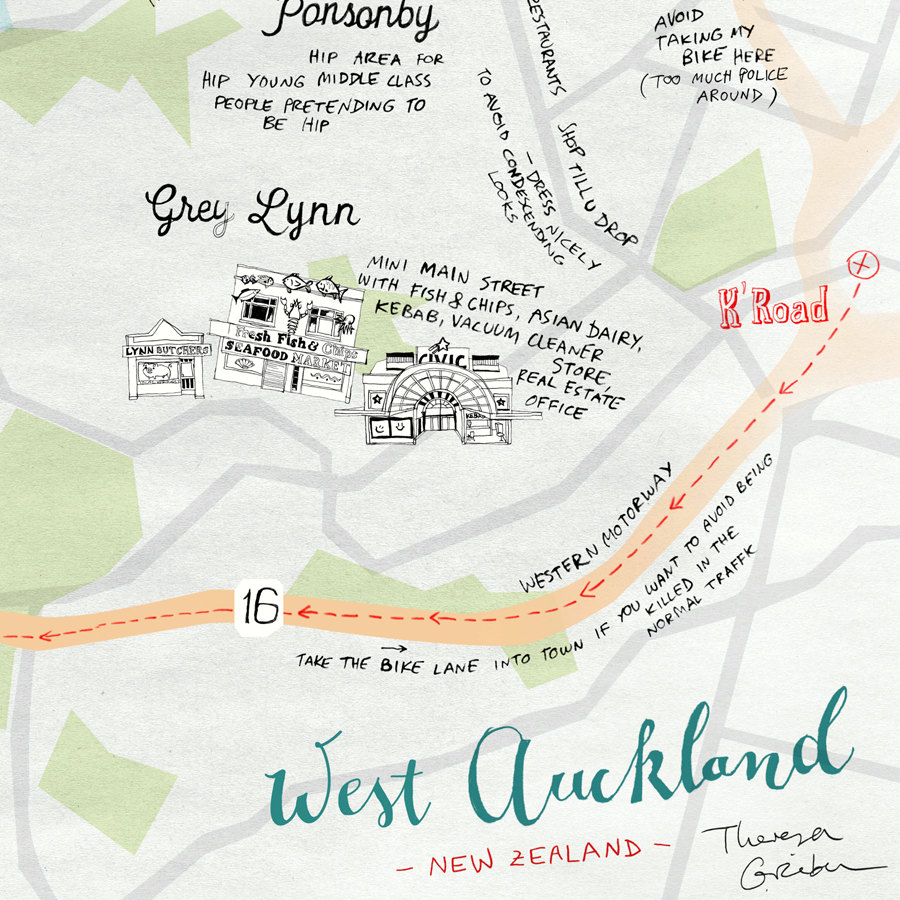 Ponsonby
HIP AREA FOR
HIP YOUNG MIDDLE CLASS
PEOPLE PRETENDING TO
BE HIP
RESTAURANTS
SHOP TILL U DROP
TO AVOID CONDESCENDING
LOOKS
– DRESS NICELY
AVOID
TAKING MY
BIKE HERE
(TOO MUCH POLICE
AROUND)
Grey Lynn
MINI MAIN STREET
WITH FISH & CHIPS, ASIAN DAIRY,
KEBAB, VACUUM CLEANER
STORE,
REAL ESTATE
OFFICE
LYNN BUTCHERS
Fresh Fish & Chips
SEAFOOD MARKET
CIVIC
KEBAB
K'Road
WESTERN MOTORWAY
16
TAKE THE BIKE LANE INTO TOWN IF YOU WANT TO AVOID BEING
KILLED IN THE
NORMAL TRAFFIC
West Auckland
– NEW ZEALAND –
Theresa
Grieben